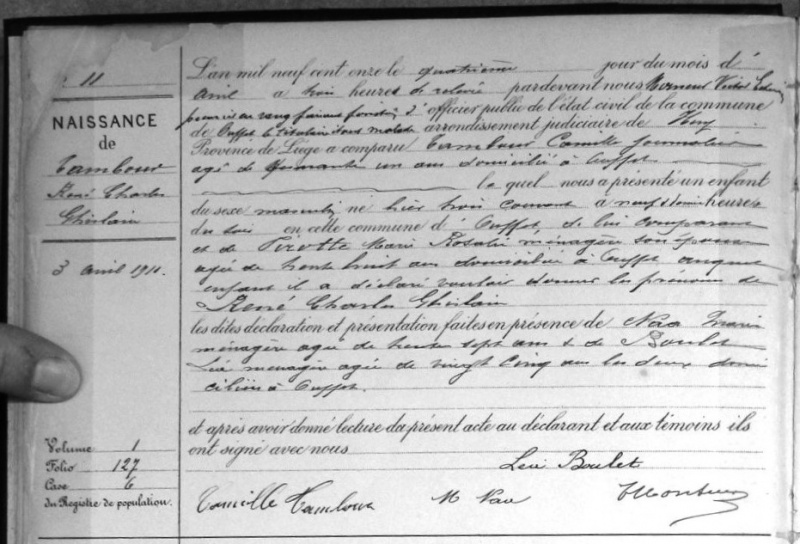 11
NAISSANCE
de
Tambour
René Charles
Ghislain
3 avril 1911.
Volume 1
Folio 127
Case 6
du Registre de population.
L'an mil neuf cent onze le quatrième jour du mois d'
avril à trois heures de relevée pardevant nous Monseur Victor
d'officier public de l'état civil de la commune
de Ouffet le titulaire étant malade arrondissement judiciaire de Huy
Province de Liège a comparu Tambour Camille Journalier
agé de quarante un ans domicilié à Ouffet
le quel nous a présenté un enfant
du sexe masculin né hier trois courant à neuf heures
du soir en cette commune d'Ouffet, de lui comparant
et de Pirotte Marie Rosalie ménagère son épouse
agée de trente huit ans domiciliée à Ouffet auquel
enfant il a déclaré vouloir donner les prénoms de
René Charles Ghislain
les dites déclaration et présentation faites en présence de Nao Marie
ménagère agée de trente sept ans & de Boulet
ménagère agée de vingt cinq ans les deux domi
ciliées à Ouffet.
et après avoir donné lecture du présent acte au déclarant et aux témoins ils
ont signé avec nous
Boulet
Camille Tambour M Nao